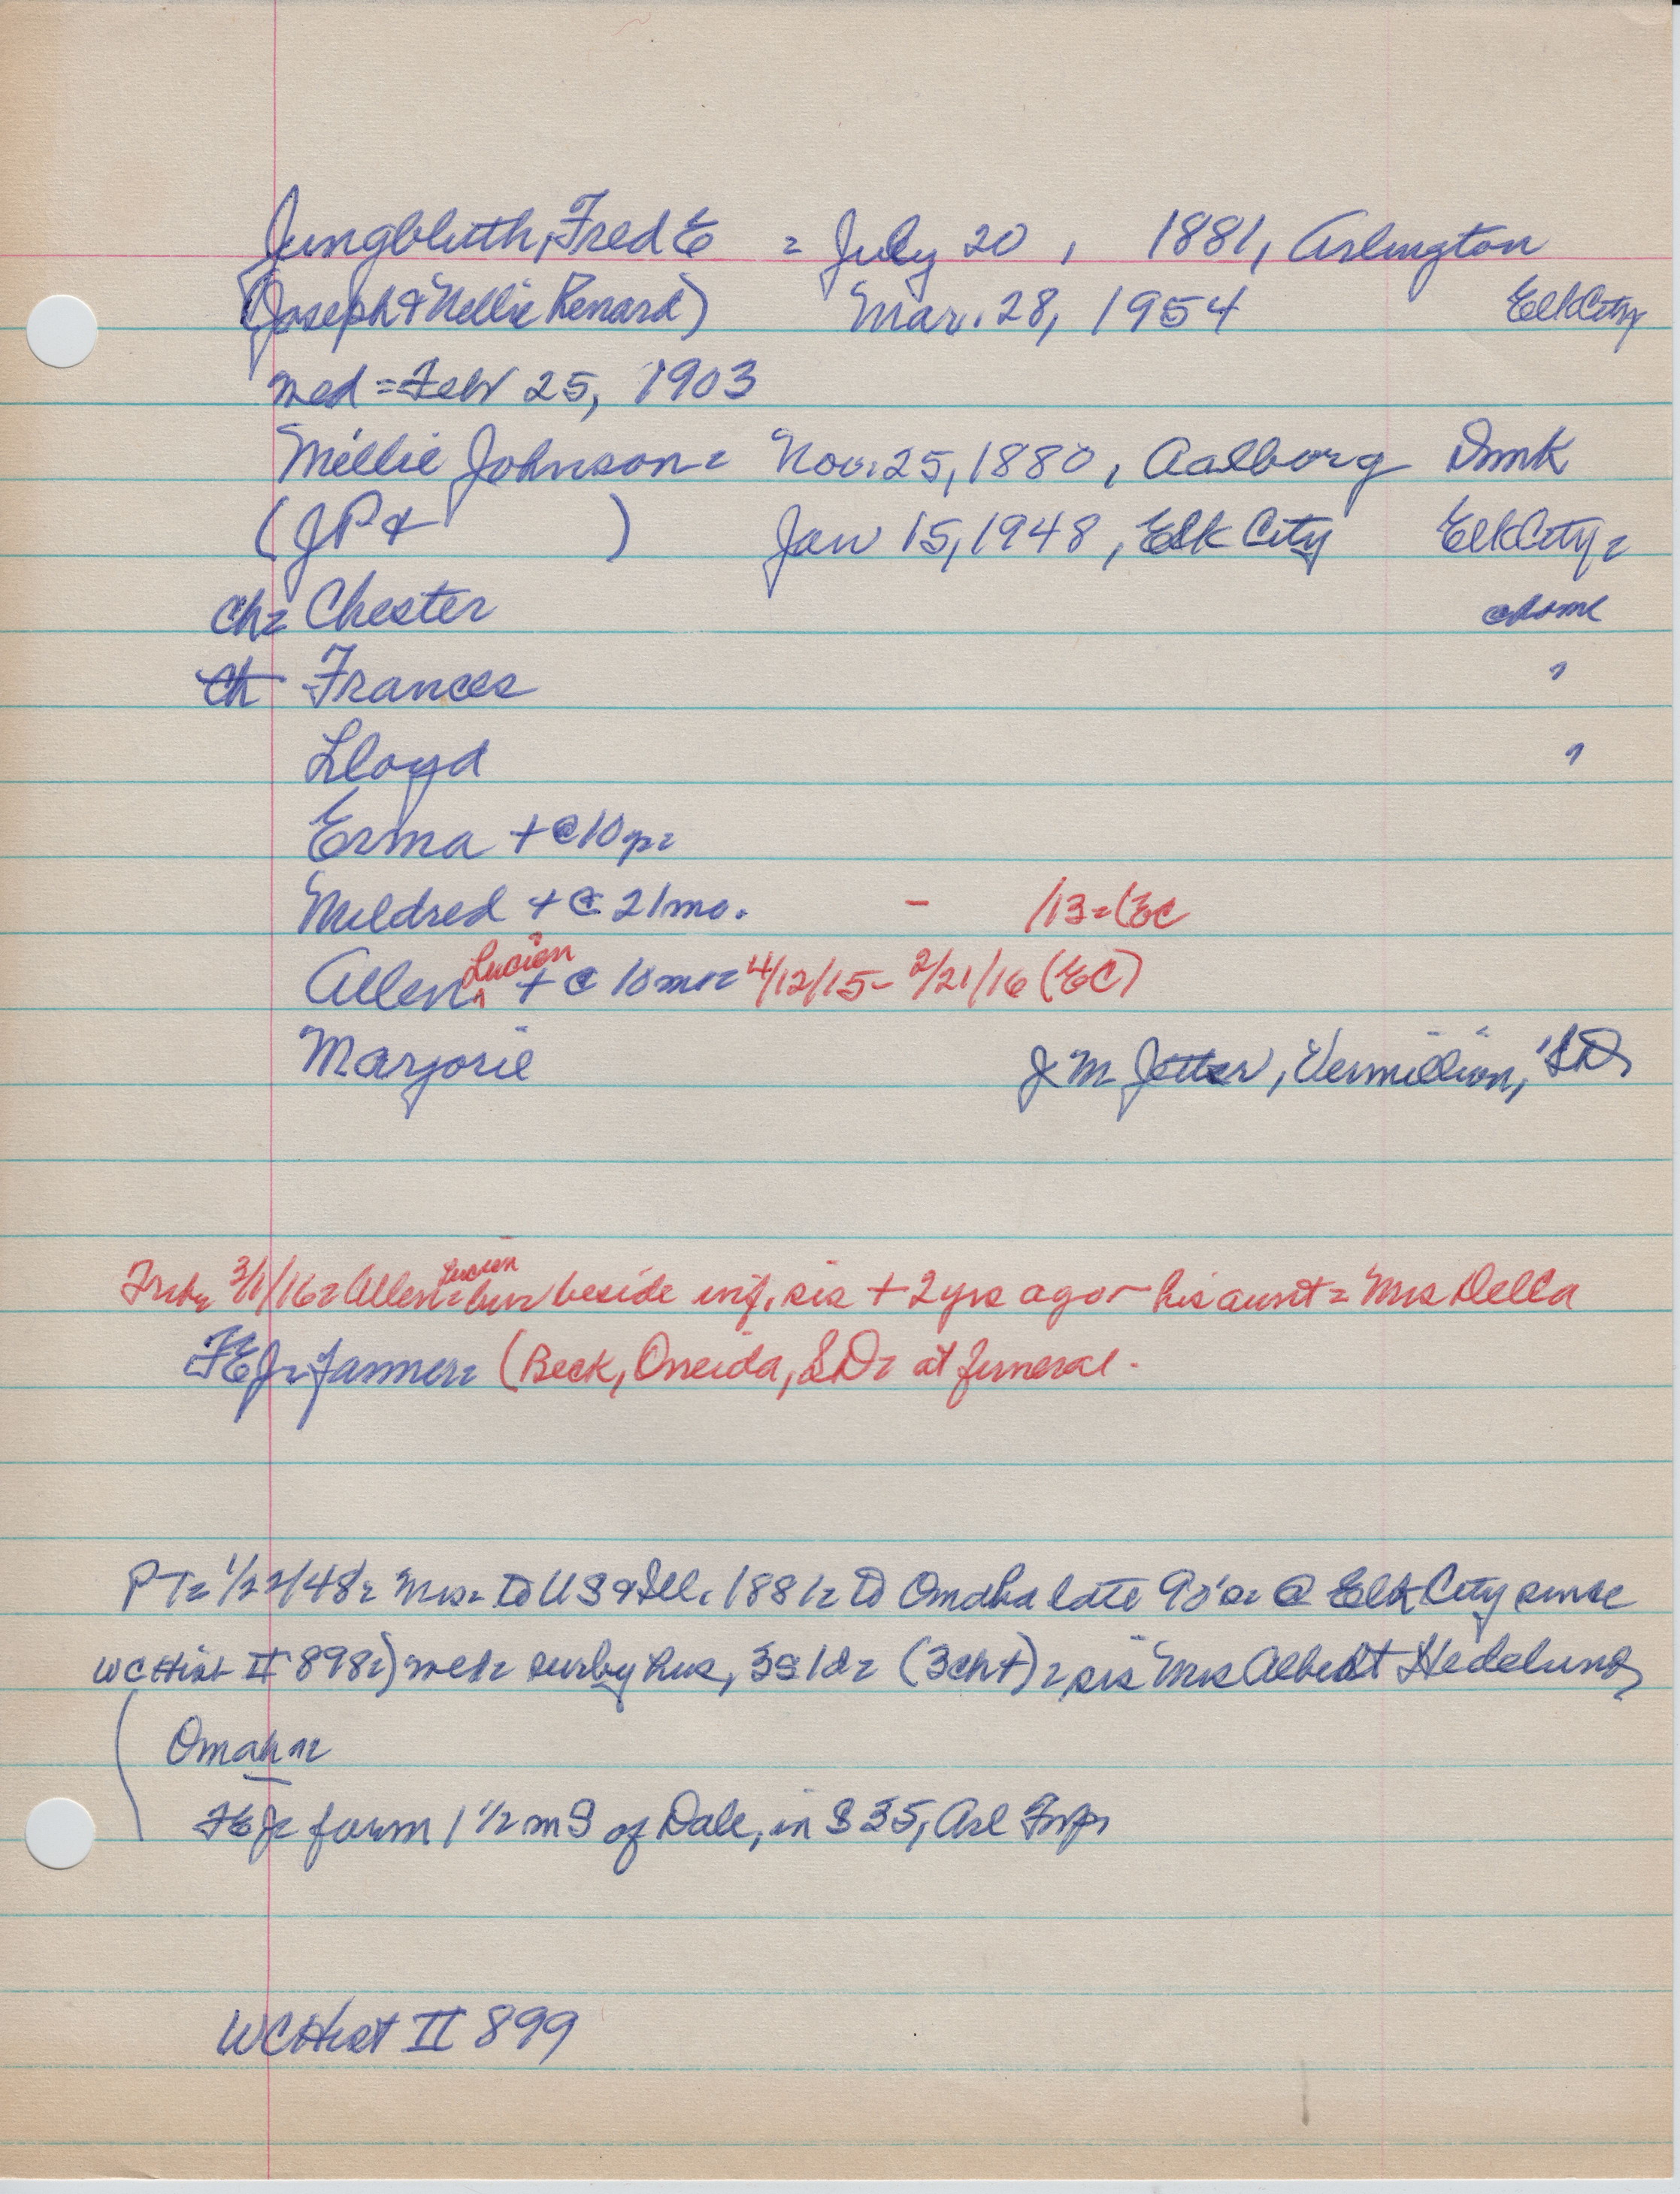 Jungbluth, Fred E = July 20, 1881, Arlington
(Joseph & Nellie Renard) Mar. 28, 1954 Elk City
wed = Feb 25, 1903
Millie Johnson = Nov. 25, 1880, Aalborg Dmk
(JP & ) Jan 15, 1948, Elk City Elk City =
ch = Chester @ home
Ch Frances "
Lloyd "
Erma + @ 10 yr =
Mildred + @ 21 mo. - /13 = (EC
Allen Lucien + @ 10 mo = 4/12/15 - 2/21/16 (EC)
Marjorie J M Jetter, Vermillion, SD
3/1/16 = Allen Lucien = bur beside inf. sis + 2 yrs ago - his aunt = Mrs Della
FEJ = farmer = (Beck, Oneida, SD = at funeral.
PT = 1/22/48 = Mrs = to US & Ill. 1881 = to Omaha late 90's = @ Elk City since
WC Hist II 898 =) wed = surv by hus, 3s 1d = (3 ch +) = sis Mrs Albert Hedelund,
Omaha =
FEJ = farm 1 1/2 m S of Dale, in S 35, Arl Twp
WC Hist II 899